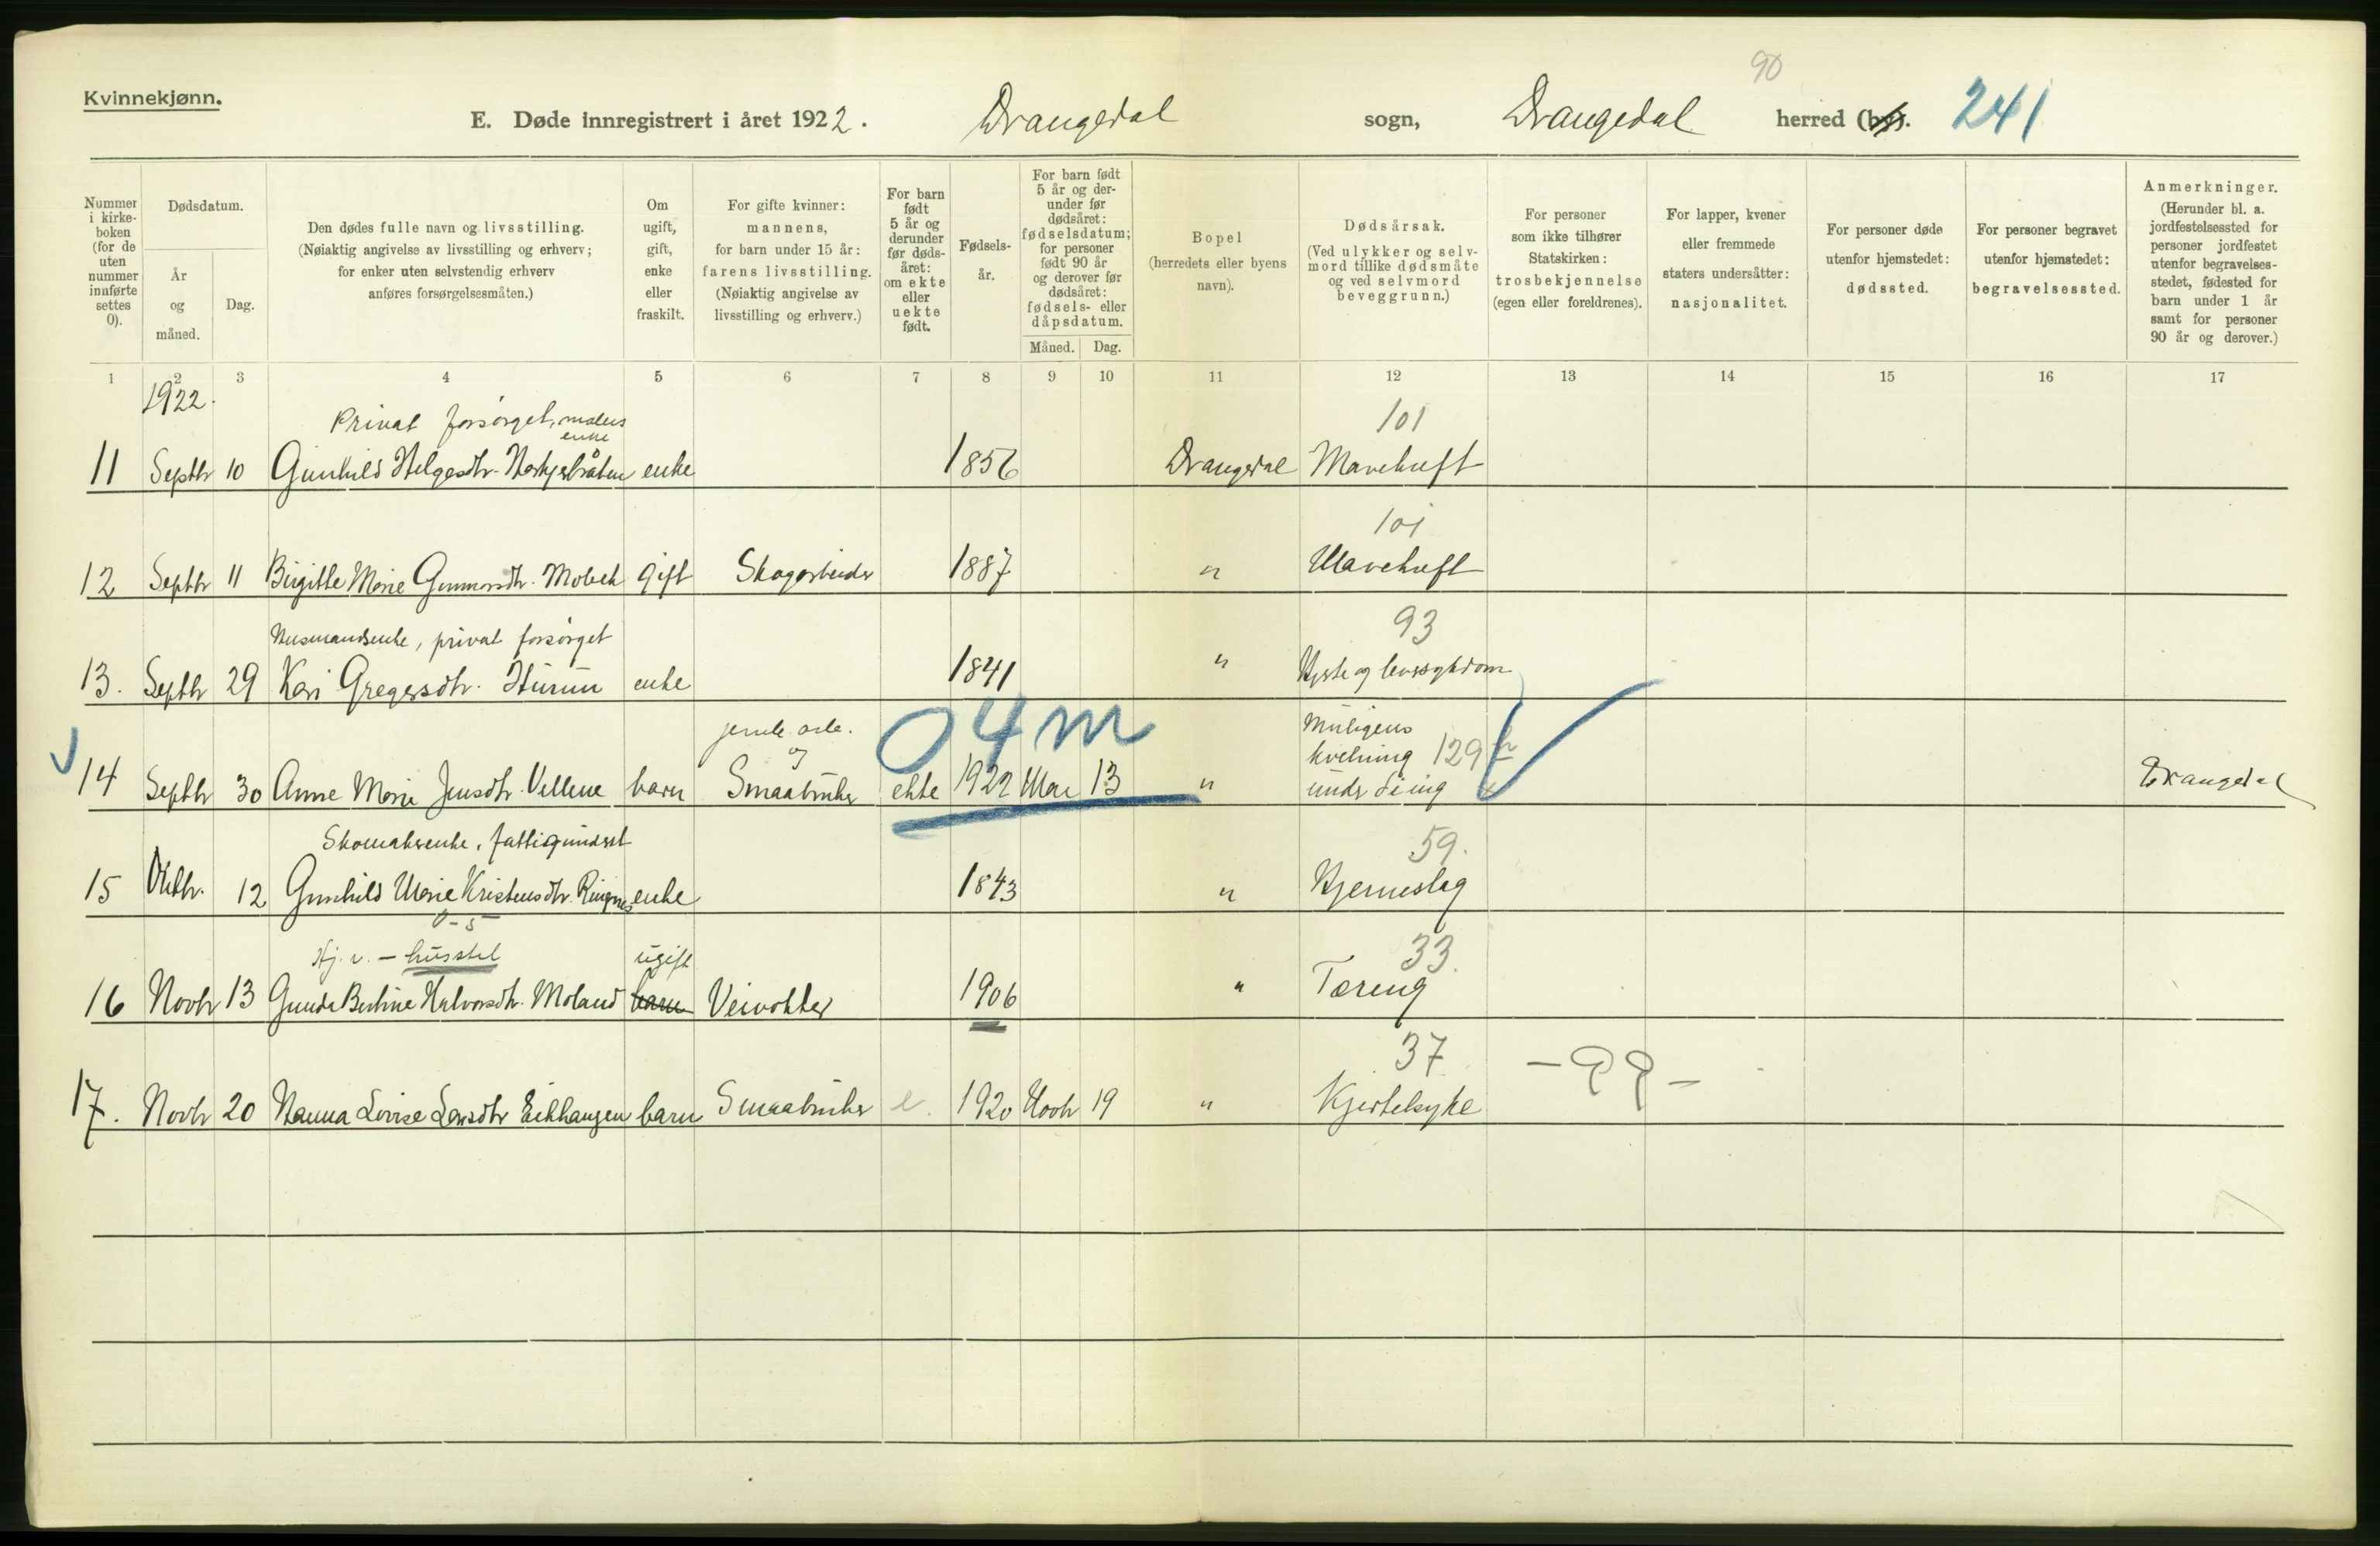 90
Kvinnekjønn.
E. Døde innregistrert i året 1922. Drangedal sogn, Drangedal herred (by). 241
Nummer i kirke-boken (for de uten nummer innførte settes 0).
Dødsdatum.
År og måned.
Dag.
Den dødes fulle navn og livsstilling.
(Nøiaktig angivelse av livsstilling og erhverv;
for enker uten selvstendig erhverv
anføres forsørgelsesmåten.)
Om ugift, gift, enke eller fraskilt.
For gifte kvinner:
mannens,
for barn under 15 år:
farens livsstilling.
(Nøiaktig angivelse av
livsstilling og erhverv.)
For barn født 5 år og derunder før døds-året: om ekte eller uekte født.
Fødsels-år.
For barn født 5 år og der-under før dødsåret: fødselsdatum; for personer født 90 år og derover før dødsåret: fødsels- eller dåpsdatum.
Måned. Dag.
Bopel
(herredets eller byens navn).
Dødsårsak.
(Ved ulykker og selv-mord tillike dødsmåte og ved selvmord beveggrunn.)
For personer som ikke tilhører Statskirken: trosbekjennelse (egen eller foreldrenes).
For lapper, kvener eller fremmede staters undersåtter: nasjonalitet.
For personer døde utenfor hjemstedet: dødssted.
For personer begravet utenfor hjemstedet: begravelsessted.
Anmerkninger.
(Herunder bl. a. jordfestelsessted for personer jordfestet utenfor begravelses-stedet, fødested for barn under 1 år samt for personer 90 år og derover.)
1 2 3 4 5 6 7 8 9 10 11 12 13 14 15 16 17
1922.
Privat forsørget, enke 101
11 Septbr 10 Gunhild Helgesdtr. enke 1856 Drangedal Mavekreft
101
12 Septbr 11 Birgitte Marie Gunnarsdtr. gift Skogarbeider 1887 " Mavekreft
Husmandsenke, privat forsørget 93
13. Septbr 29 Kari Gregersdtr. enke 1841 " Hjerte og leversykdom
og 04m Muligens
kvelning 129
14 Septbr 30 Anne Marie Jensdtr. Vellene barn Smaabruker ekte 1922 Mai 13 " under Drangedal
Skomakerenke, fattigunderst 59.
15 Oktbr. 12 Gunhild Marie Kristensdtr. Ringnes enke 1843 " Hjerneslag
0-5
Hj. v. - husstel ugift 33.
16 Novbr 13 Gunda Bertine Halvorsdtr. Moland barn Veivokter 1906 " Tæring
37 -99-
17. Novbr 20 Hanna Lovise Larsdtr Eikhaugen barn Smaabruker e. 1920 Novbr 19 " Kjertelsyke